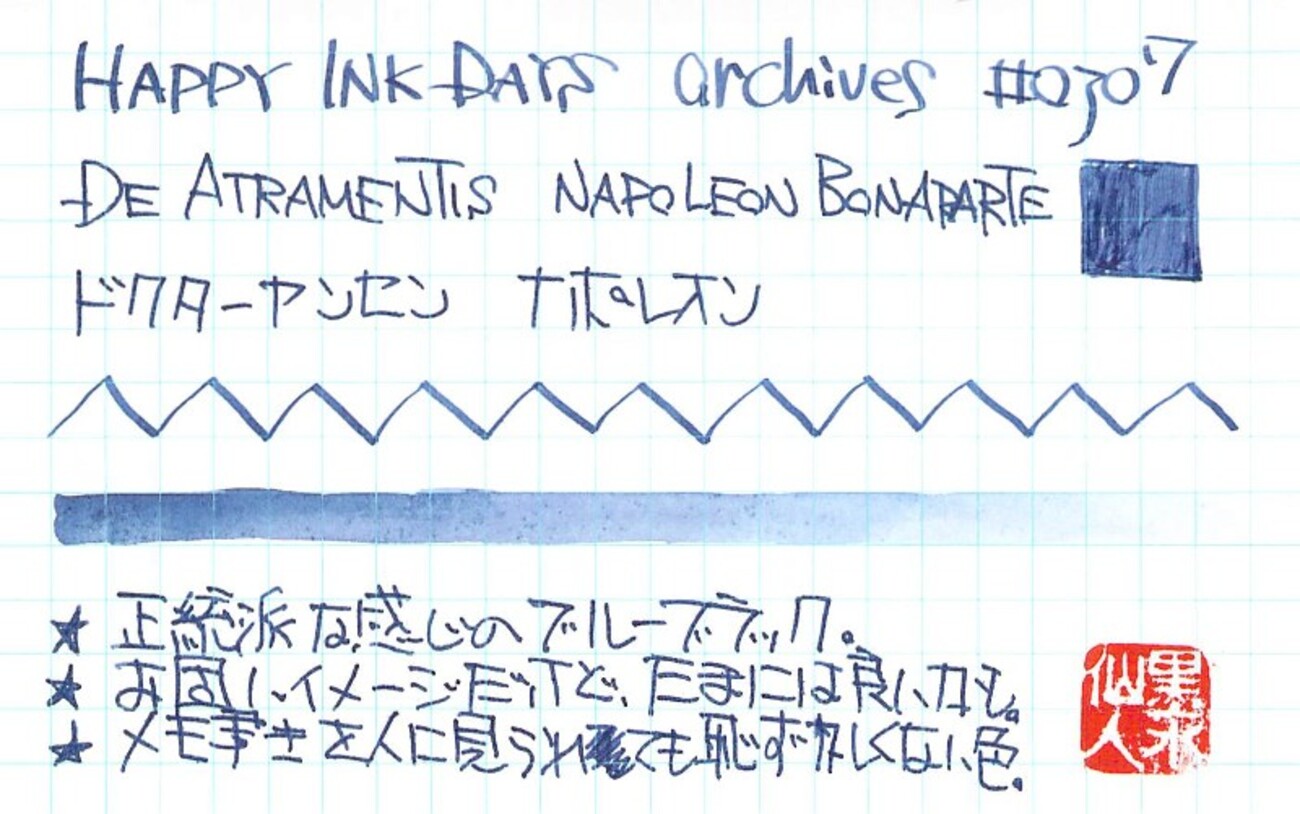 HAPPY INK DAYS archives #0307
DE ATRAMENTIS NAPOLEON BONAPARTE
ドクターヤンセン ナポレオン
★ 正統派な感じのブルーブラック。
★ お固いイメージだけど、たまには良いかも。
★ メモ書きを人に見られても恥ずかしくない色。
仙人